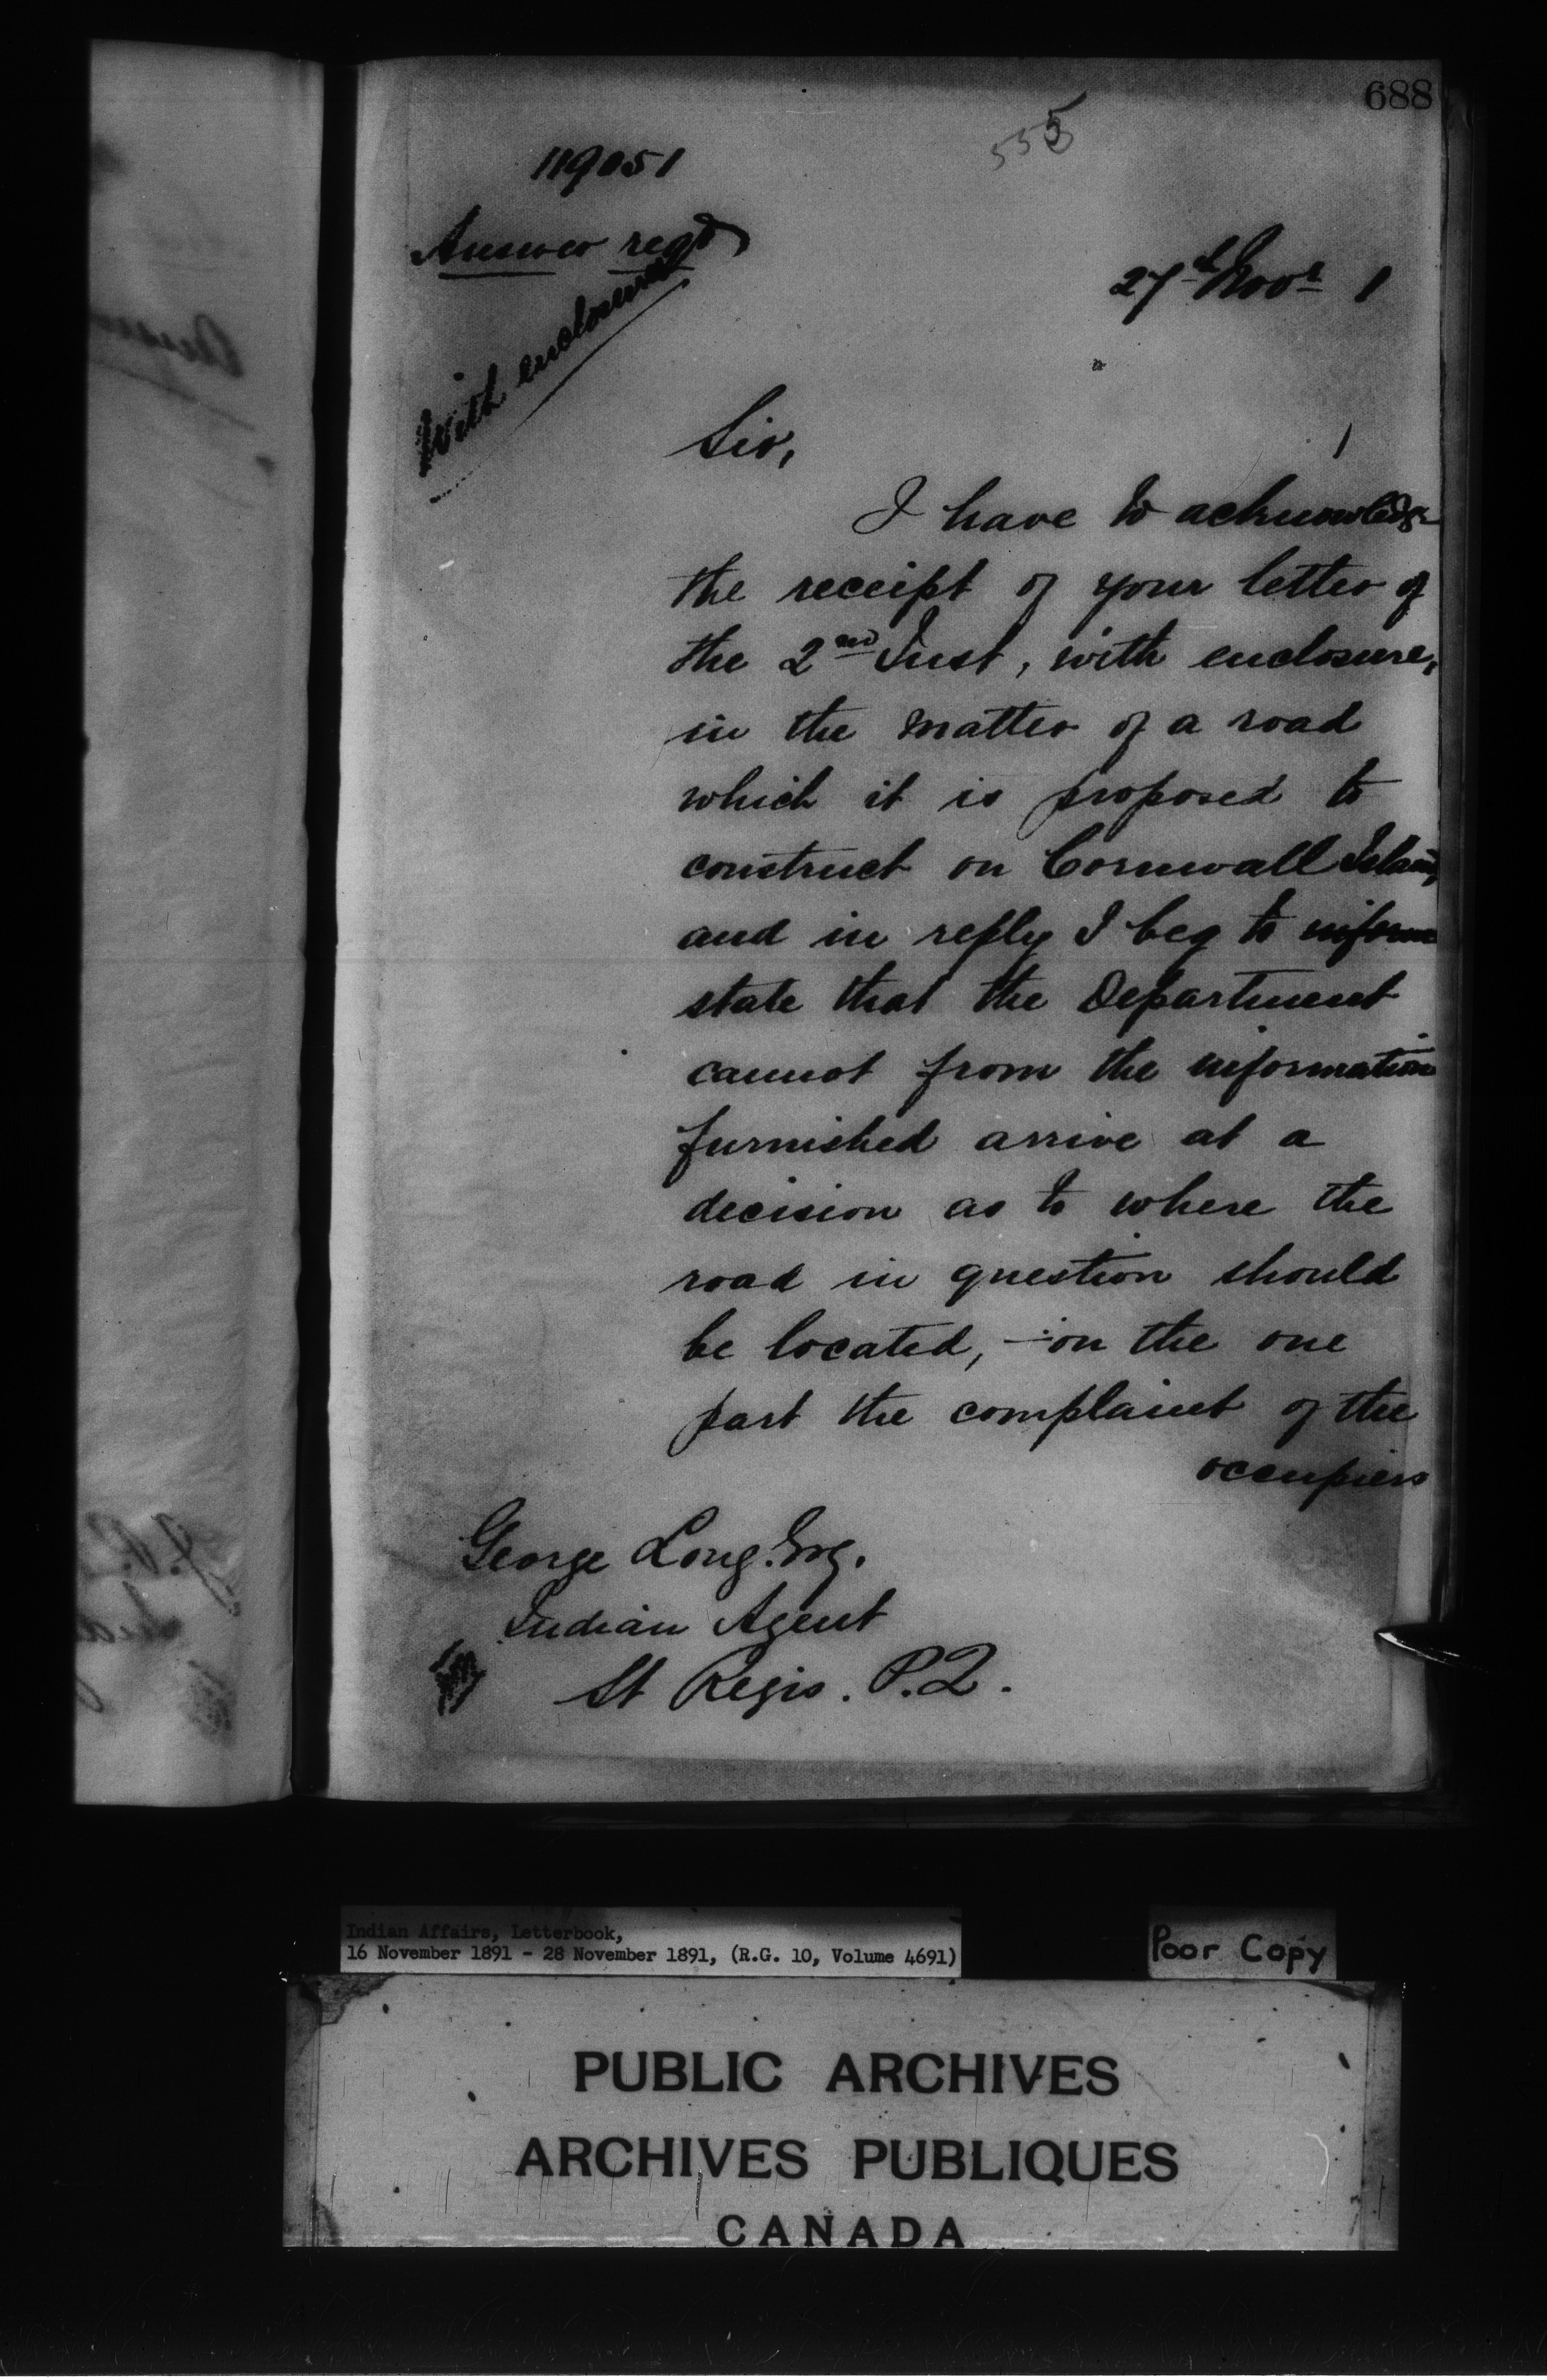 688
555
119051
Answer reqd
With enclosure
27th Novr 1
Sir,
I have to acknowledge
the receipt of your letter of
the 2nd Inst, with enclosure,
in the matter of a road
which it is proposed to
construct on Cornwall Island,
and in reply I beg to inform
state that the Department
cannot from the information
furnished arrive at a
decision as to where the
road in question should
be located, - on the one
part the complaint of the
occupiers
George Long. Esq.
Indian Agent
St Regis. P.Q.
Indian Affairs, Letterbook,
16 November 1891 - 28 November 1891, (R.G. 10, Volume 4691)
Poor Copy
PUBLIC ARCHIVES
ARCHIVES PUBLIQUES
CANADA